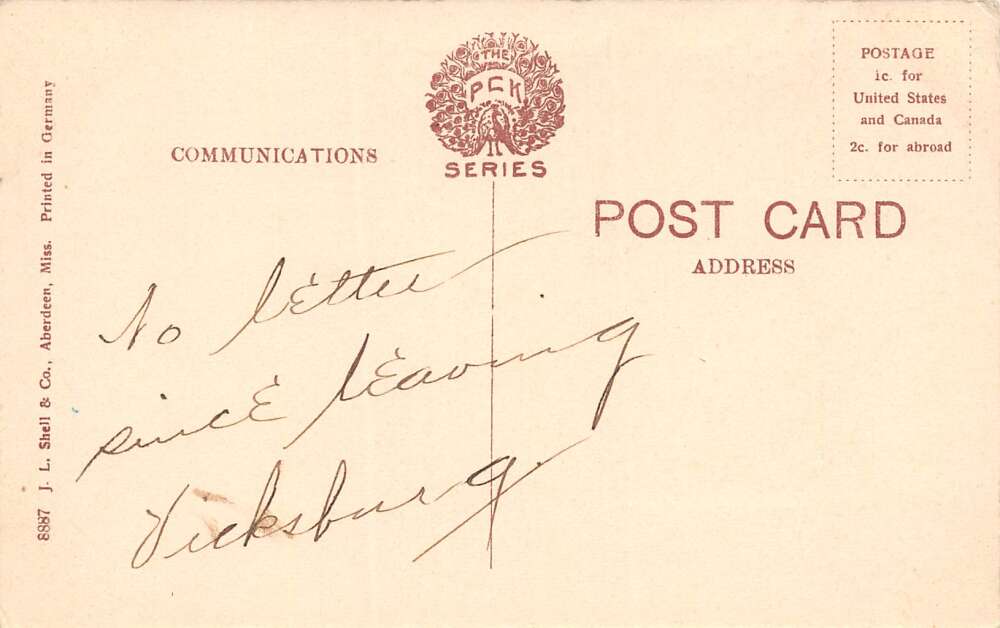 THE
PCK
SERIES
POSTAGE
1c. for
United States
and Canada
2c. for abroad
COMMUNICATIONS
POST CARD
ADDRESS
No letter
since leaving
Vicksburg.
8887 J. L. Shell & Co., Aberdeen, Miss. Printed in Germany